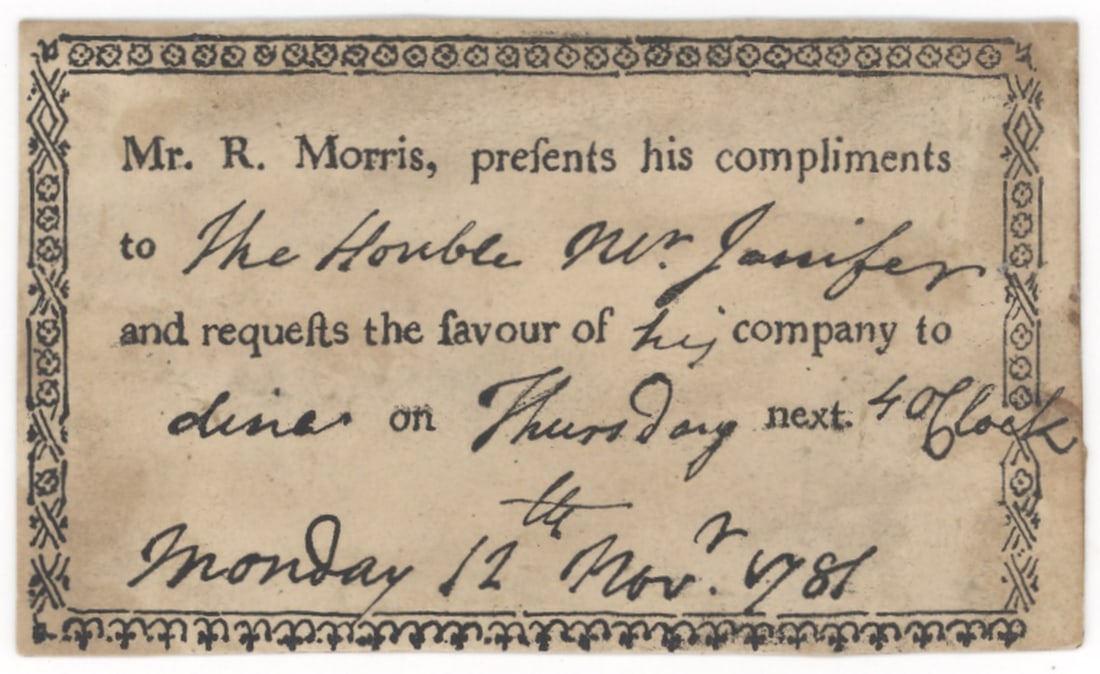 Mr. R. Morris, preſents his compliments
to The Honble Mr. Jenifer
and requeſts the favour of his company to
dine on Thursday next. 4 OClock
Monday 12th Novr. 1781